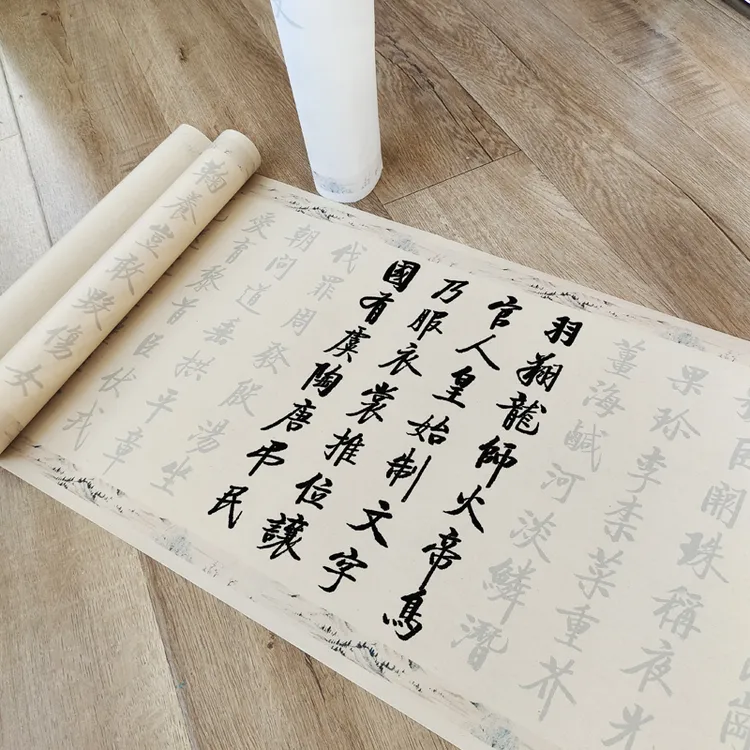 巨闕珠稱夜光
果珍李柰菜重芥
薑海鹹河淡鱗潛
羽翔龍師火帝鳥
官人皇始制文字
乃服衣裳推位讓
國有虞陶唐吊民
伐罪周發殷湯坐
朝問道垂拱平章
愛育黎首臣伏戎
鞠養豈敢毀傷女